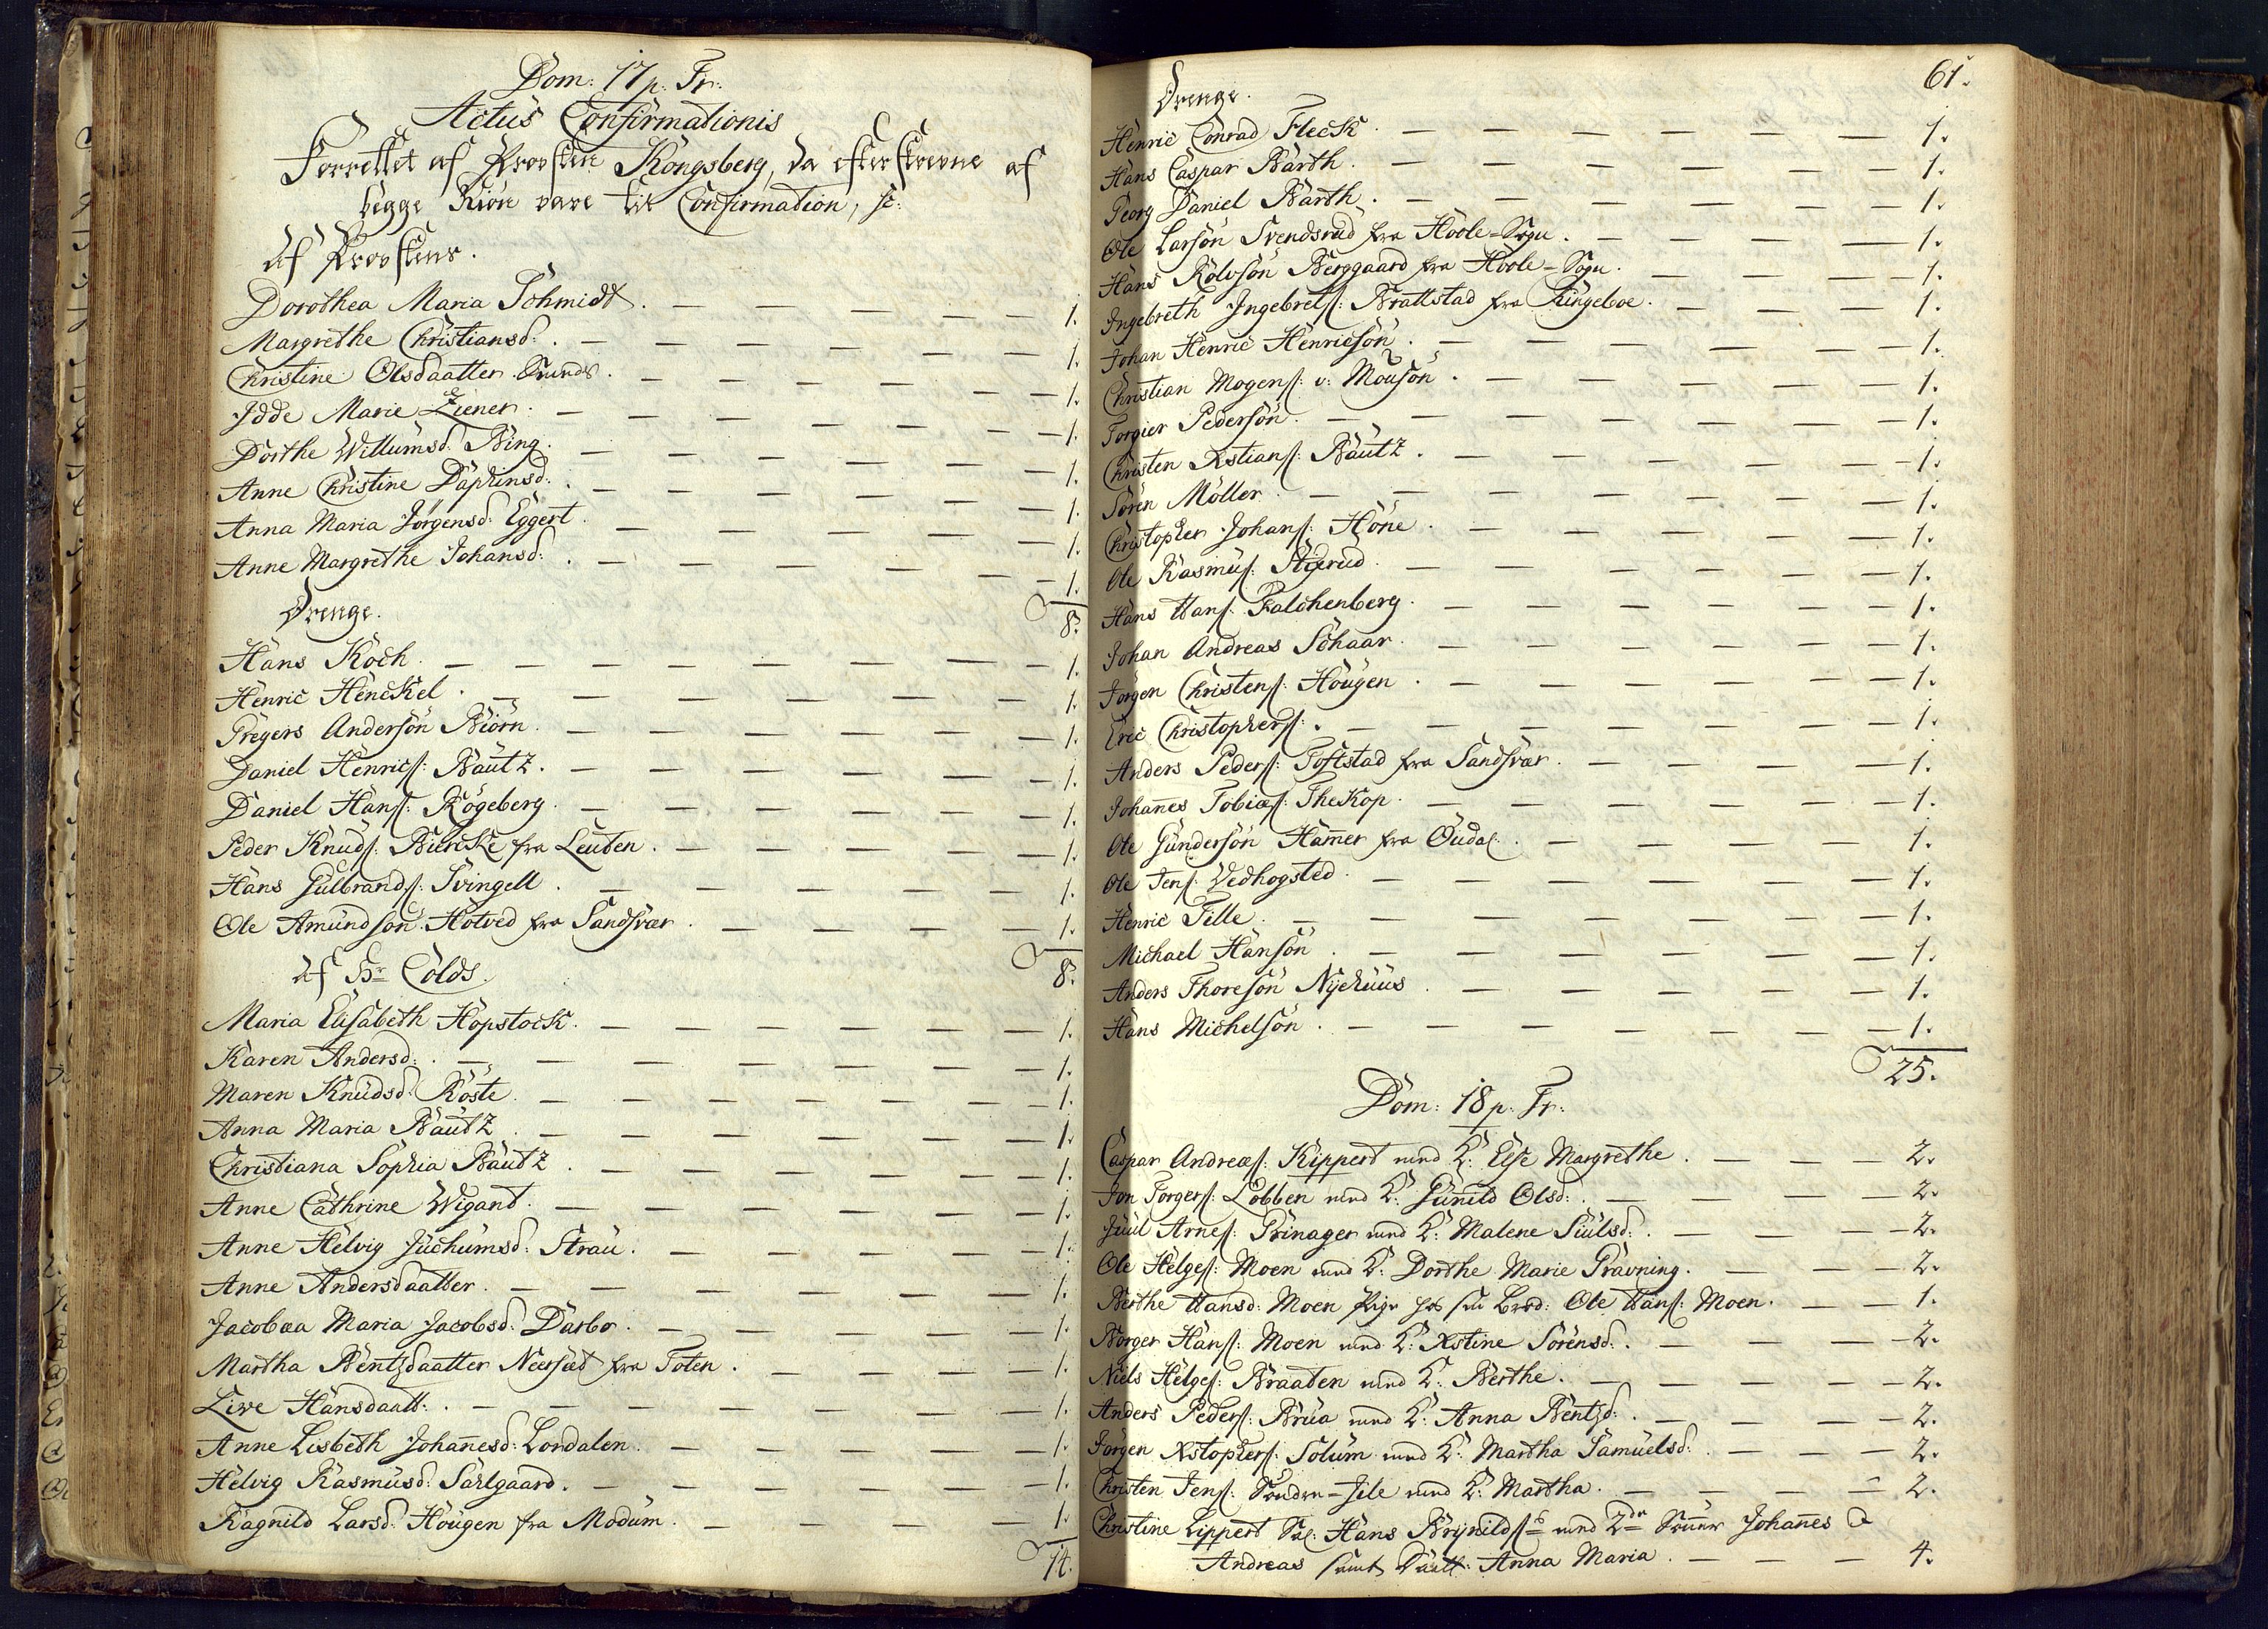 Dom: 17 p. Tr:
Actus Confirmationis
Forrettet af Provsten Kongsberg, da efterskrevne af
begge Kiön vare til Confirmation, sc:
af Provstens.
Dorothea Maria Schmidt. — 1.
Margrethe Christiansd: — 1.
Christine Olsdaatter — 1.
Idde Marie Ziener. — 1.
Dorthe Willumsd. Bing. — 1.
Anne Christine Daphinsd: — 1.
Anna Maria Jörgensd: Eggert. — 1.
Anne Margrethe Johansd: — 1.
8.
Drenge.
Hans Koch. — 1.
Henric Henckel. — 1.
Pregers Andersön Biörn. — 1.
Daniel Henrics: Bautz. — 1.
Daniel Hans: Kögeberg. — 1.
Peder Knuds: Bircke fra Leuten. — 1.
Hans Gulbrands: Svingell. — 1.
Ole Amundson Hotved fra Sandsvær. — 1.
8.
af Hr Colds.
Maria Elisabeth Hopstock. — 1.
Karen Andersd: — 1.
Maren Knudsd: Röste. — 1.
Anna Maria Bautz. — 1.
Christiana Sophia Bautz. — 1.
Anne Cathrine Wigant. — 1.
Anne Helvig Juchumsd: Strau. — 1.
Anne Andersdaatter. — 1.
Jacobæa Maria Jacobsd: Darbo. — 1.
Martha Bentzdaatter Neersæt fra Toten. — 1.
Live Hansdaatt: — 1.
Anne Lisbeth Johañesd: Lordalen. — 1.
Helvig Rasmusd: Sartgaard. — 1.
Ragnild Larsd: Hougen fra Modum. — 1.
14.
61.
Drenge.
Henric Conrad Fleck. — 1.
Hans Caspar Barth. — 1.
Georg Daniel Barth. — 1.
Ole Larsön Svendsrud fra Hoole-Sogn. — 1.
Hans Rolvsön Berggaard fra Hoole-Sogn. — 1.
Ingebreth Ingebrets: Brattstad fra Ringeboe. — 1.
Johan Henric Henricsön. — 1.
Christian Mogens: v: Mousön. — 1.
Torgier Pedersön. — 1.
Christen Xstians: Bautz. — 1.
Sören Möller. — 1.
Christopher Johans: Höne. — 1.
Ole Rasmus: Stigerud. — 1.
Hans Hans: Falchenberg. — 1.
Johan Andreas Schaar. — 1.
Jörgen Christens: Hougen. — 1.
Eric Christophers: — 1.
Anders Peders: Toftstad fra Sandsvær. — 1.
Johañes Tobiæs: Thekop. — 1.
Ole Gundersön Hamer fra Oudal. — 1.
Ole Jens: Vedhogsted. — 1.
Henric Tille. — 1.
Michael Hansön. — 1.
Anders Thoresön Nyehuus. — 1.
Hans Michelsön. — 1.
25.
Dom: 18 p. Tr:
Caspar Andreæs: Kippert med K: Else Margrethe. — 2.
Jon Torgers: Löbben med K: Gunild Olsd: — 2.
Juul Arnes: Prinager med K: Malene Siulsd: — 2.
Ole Helges: Moen med K: Dorthe Marie Pravning. — 2.
Berthe Hansd: Moen Pige hos sin Brod: Ole Hans: Moen. — 1.
Borger Hans: Moen med K: Xstine Sörensd: — 2.
Niels Helges: Braaten med K: Berthe. — 2.
Anders Peders: Brua med K: Anna Bentzd: — 2.
Jörgen Xstophers: Solum med K: Martha Samuelsd: — 2.
Christen Jens: Söndre-Jile med K: Martha. — 2.
Christine Lippert Sal: Hans Brynilds: med 2de Sönner Johañes &
Andreas samt Daatt: Anna Maria. — 4.